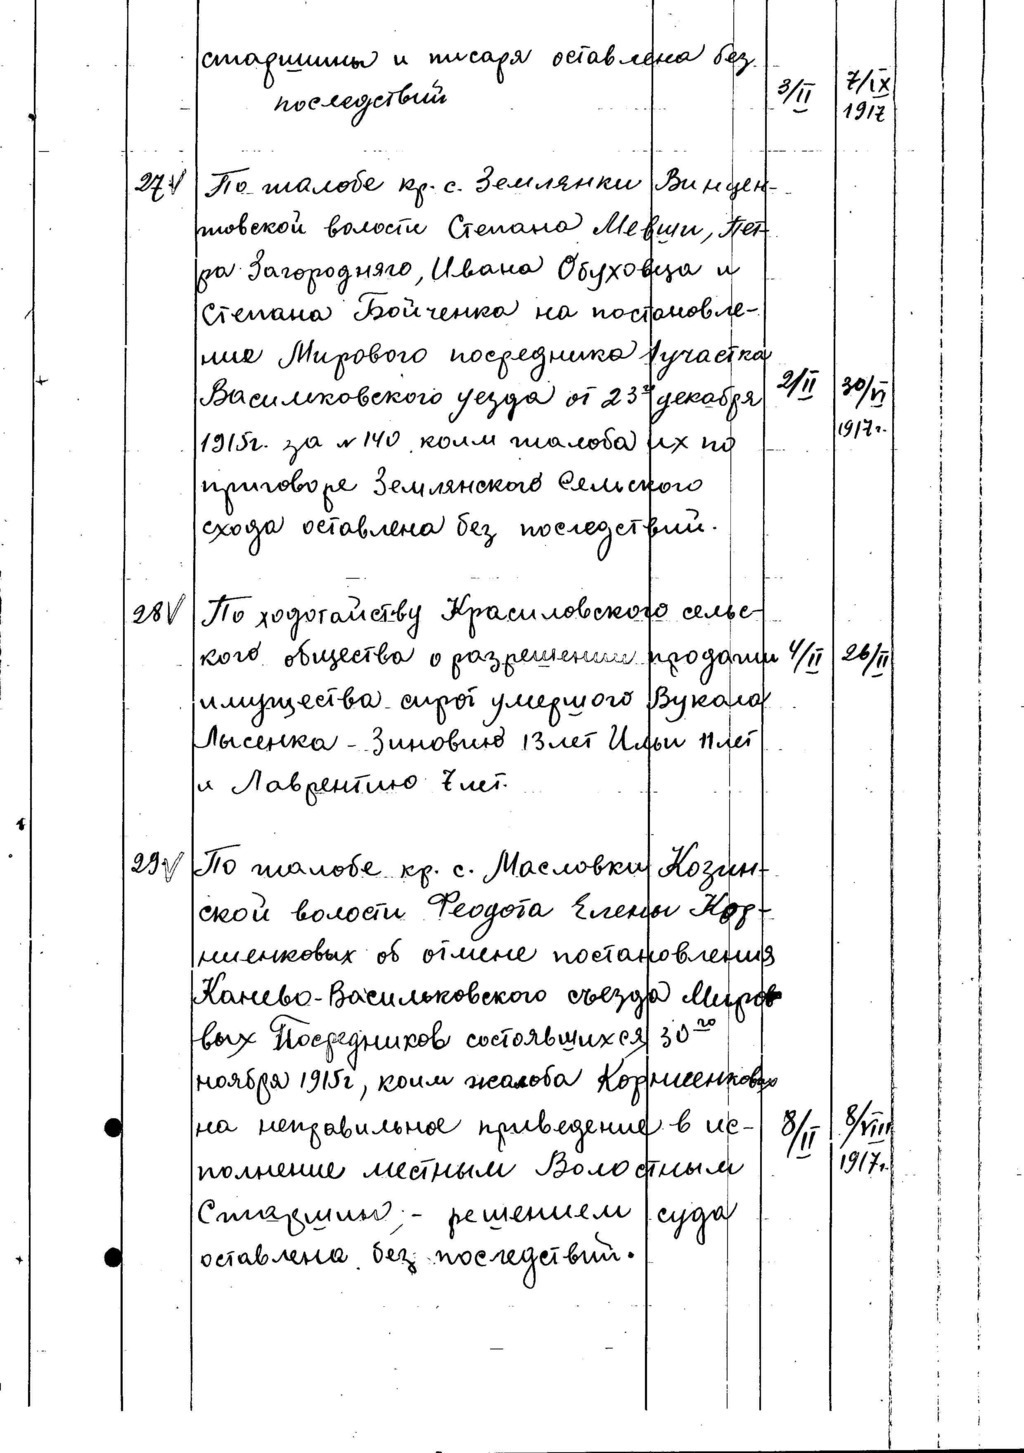 старшины и писаря оставлена без
последствий 3/II 7/IX
1917
27 По жалобе кр. с. Землянки Винцен-
товской волости Степана Мевши, Пет-
ра Загородняго, Ивана Обуховца и
Степана Бойченка на постановле-
ние Мирового посредника 1 участка
Васильковского уезда от 23го декабря 2/II 30/VI
1915г. за № 140 коим жалоба их по 1917г.
приговоре Землянского Сельского
схода оставлена без последствий.
28 По ходотайству Красиловского сельс-
кого общества о разрешении продажи 4/II 26/II
имущества сирот умершого Вукола
Лысенка - Зиновию 13 лет Ильи 11 лет
и Лаврентию 7 лет.
29 По жалобе кр. с. Масловки Козин-
ской волости Феодота Елены Кор-
ниенковых об отмене постановления
Канево-Васильковского съезда Миров
вых Посредников состоявшихся 30го
ноября 1915г, коим жалоба Корниенковых
на неправильное приведение в ис- 8/II 8/VIII
полнение местным Волостным 1917г.
Старшино - решением суда
оставлена без последствий.